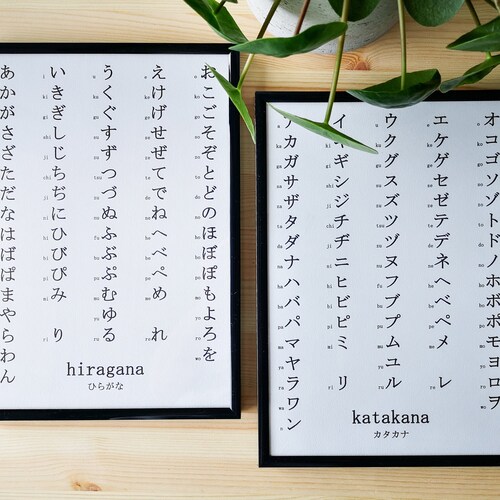 あかがさざただなはばぱまやらわん
いきぎしじちぢにひびぴみ り
うくぐすずつづぬふぶぷむゆる
えけげせぜてでねへべぺめ れ
おこごそぞとどのほぼぽもよろを
hiragana
ひらがな
アカガサザタダナハバパマヤラワン
イキギシジチヂニヒビピミ リ
ウクグスズツヅヌフブプムユル
エケゲセゼテデネヘベペメ レ
オコゴソゾトドノホボポモヨロヲ
katakana
カタカナ